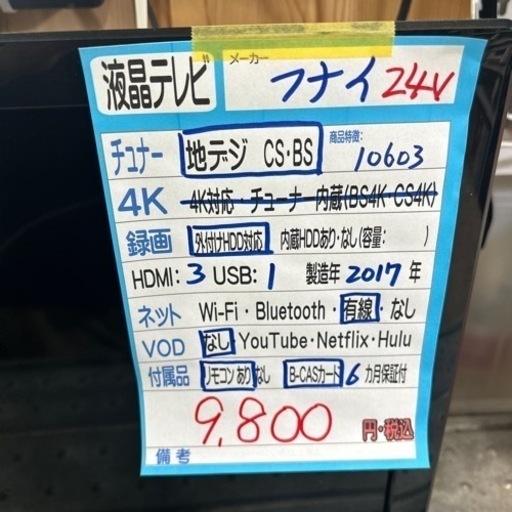 液晶テレビ メーカー フナイ 24V
チューナー 地デジ CS・BS 商品特徴: 10603
4K 4K対応・チューナー内蔵(BS4K CS4K)
録画 外付けHDD対応 内蔵HDDあり・なし(容量: )
HDMI: 3 USB: 1 製造年 2017 年
ネット Wi-Fi・Bluetooth・有線・なし
VOD なし・YouTube・Netflix・Hulu
付属品 リモコン あり なし B-CASカード 6 カ月保証付
9,800 円・税込
備考